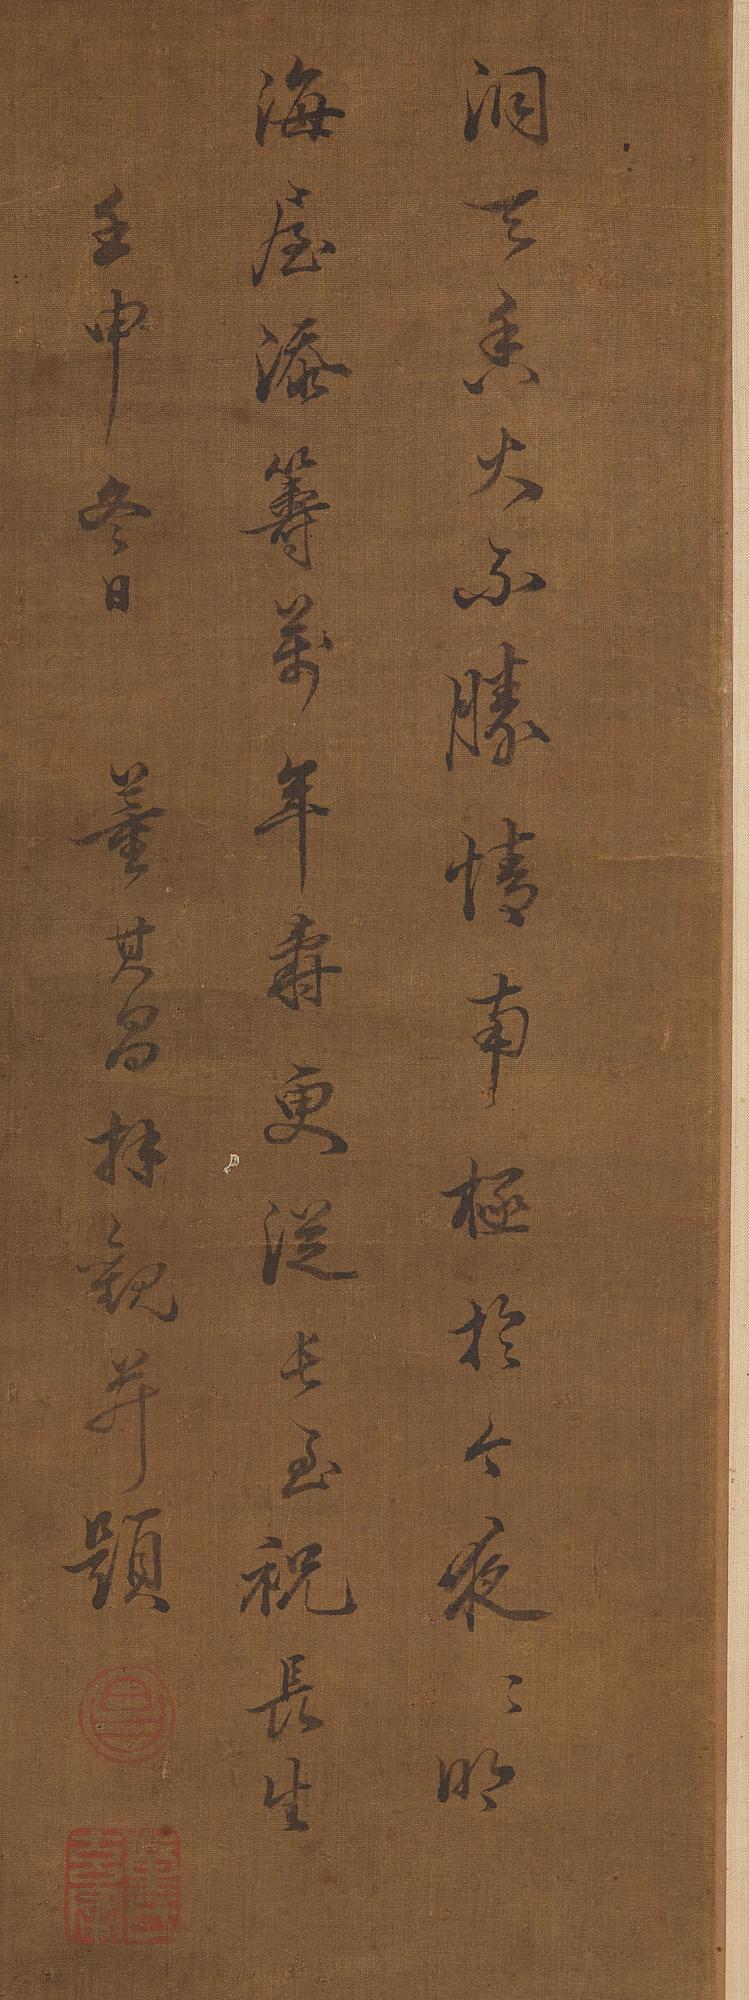 洞天香火不勝情南極於今夜〻明
海屋添籌萬年壽更從長至祝長生
壬申冬日 董其昌拜觀并題
昌